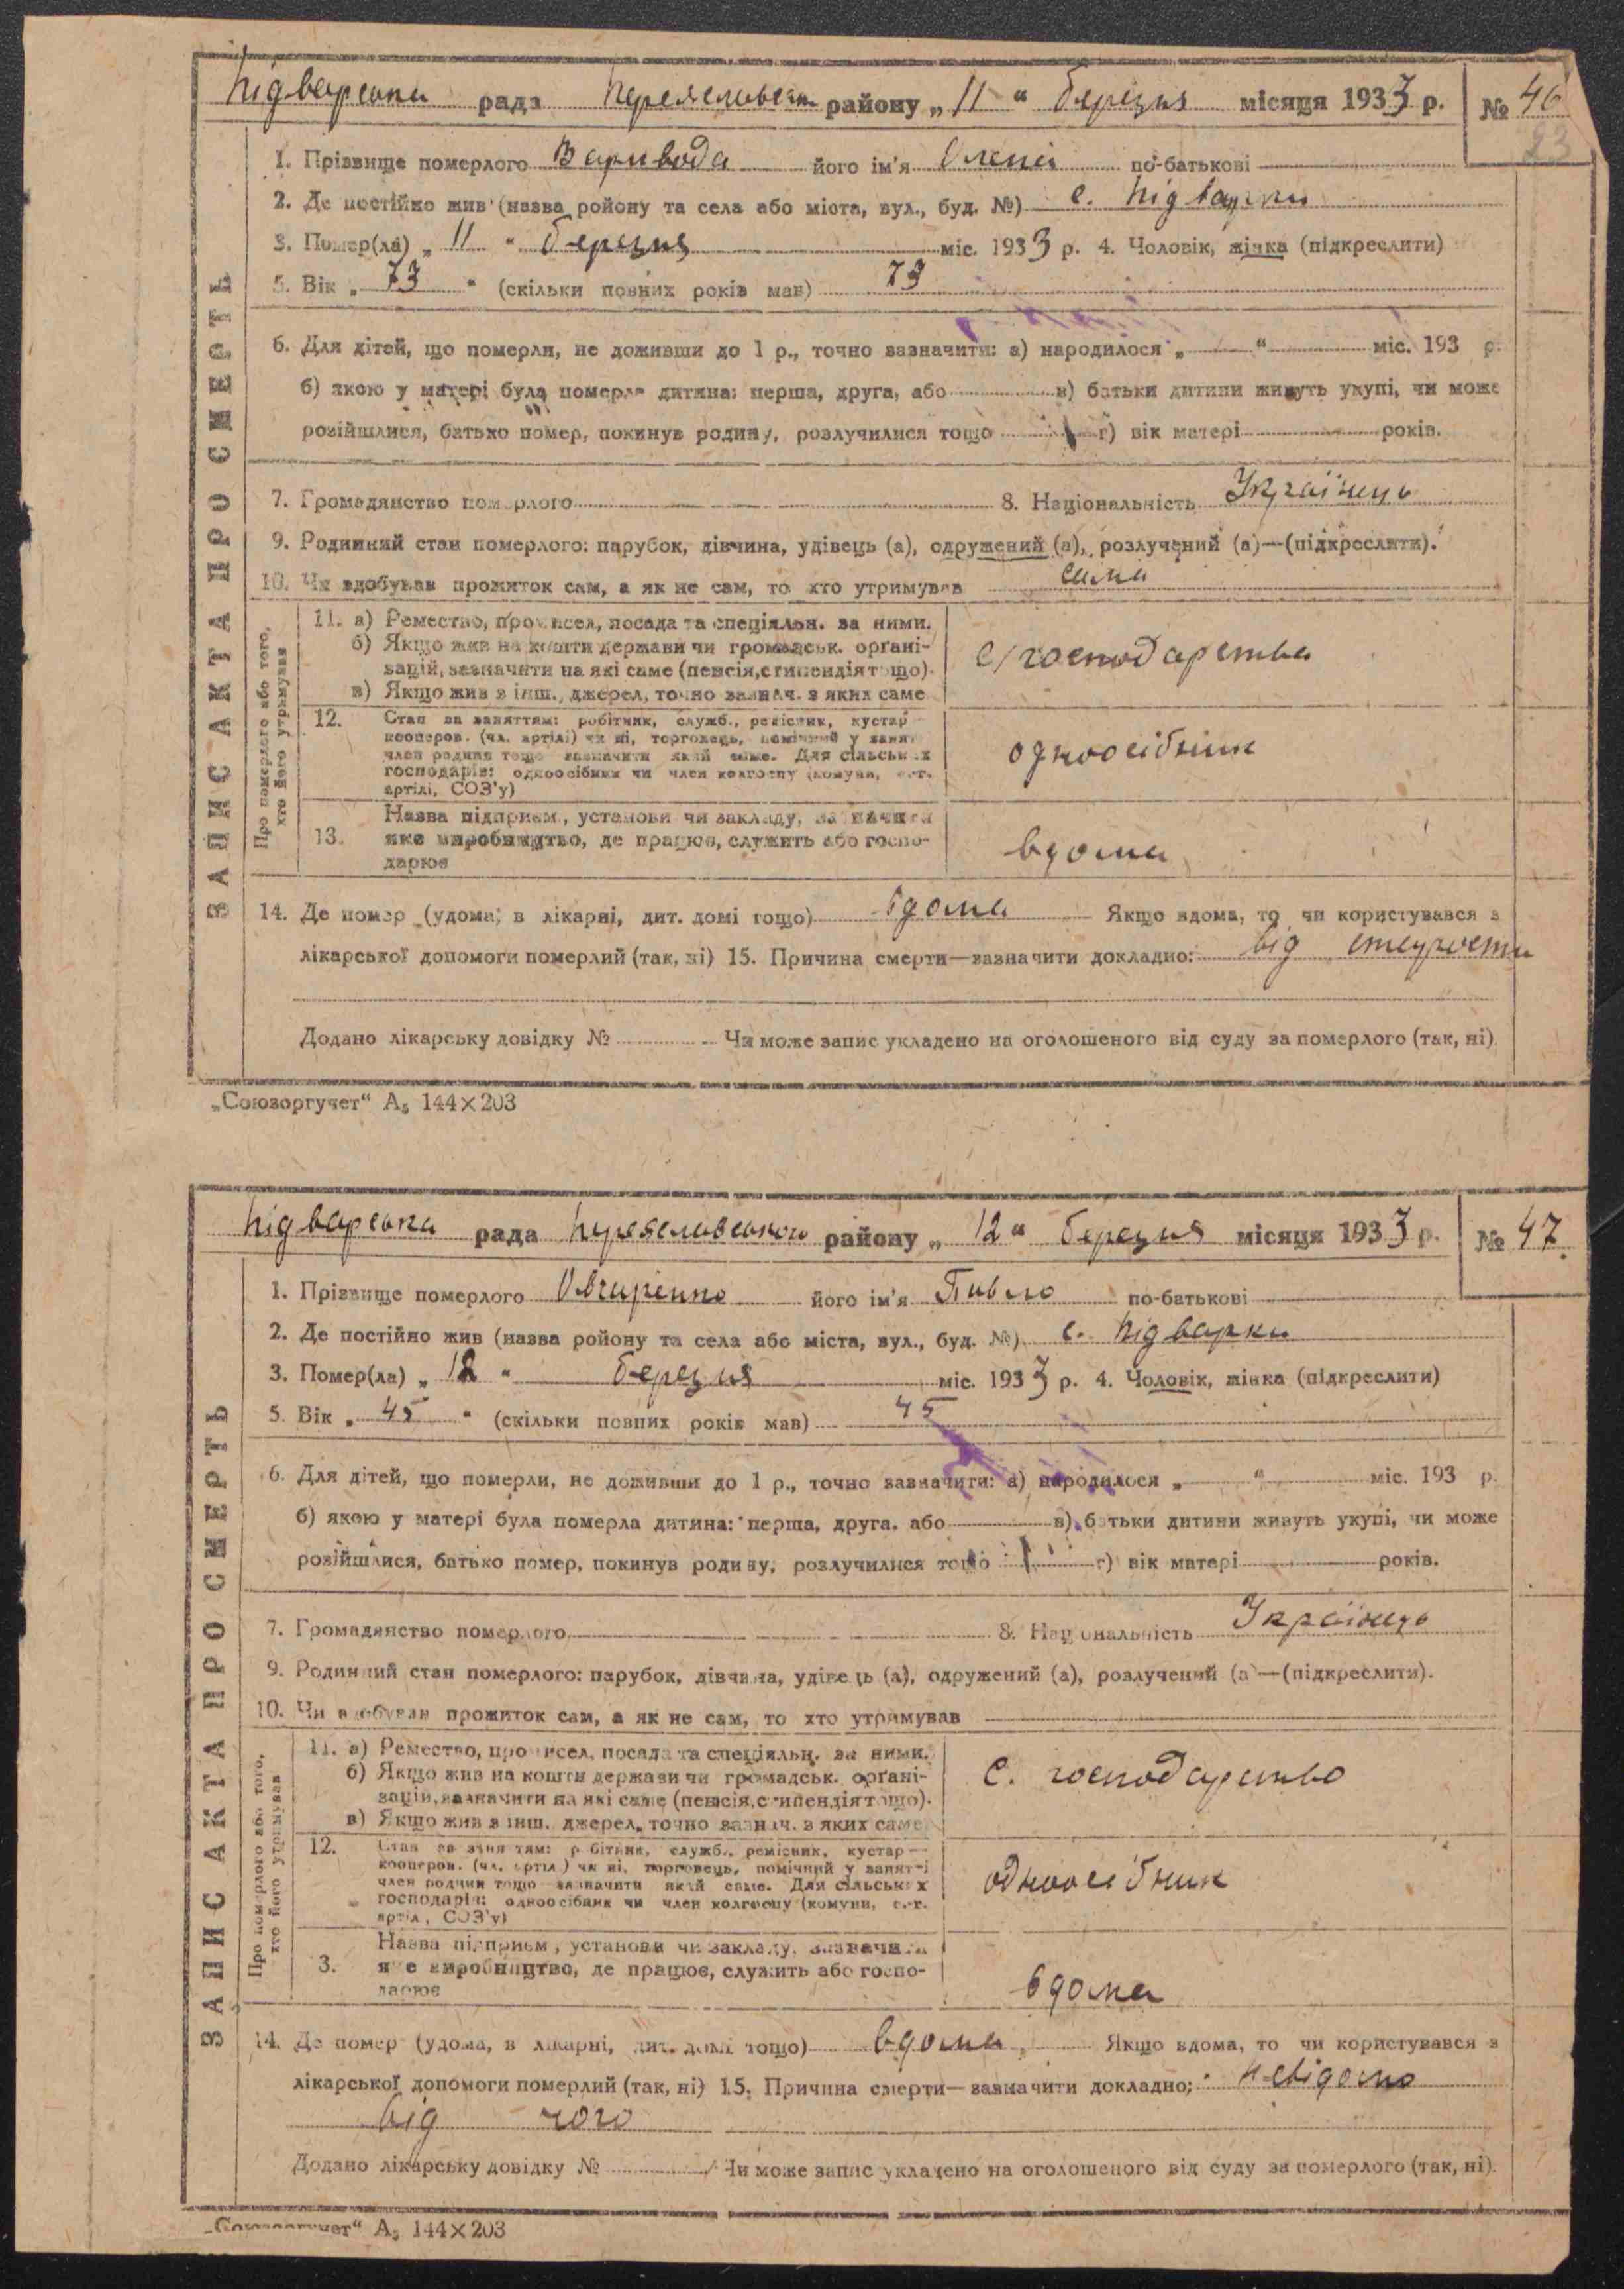 Підварська рада Переяславськ району „11“ березня місяця 1933 р. № 46
23
1. Прізвище померлого Варивода його ім'я по-батькові
2. Де постійно жив (назва ройону та села або міста, вул., буд. №) с. Підварки
3. Помер(ла) „11“ березня міс. 1933 р. 4. Чоловік, жінка (підкреслити)
5. Вік „73“ (скільки повних років мав) 73
6. Для дітей, що померли, не доживши до 1 р., точно зазначити: а) народилося „ “ міс. 193 р.
б) якою у матері була померла дитина: перша, друга, або в) батьки дитини живуть укупі, чи може
розійшлися, батько помер, покинув родину, розлучилися тощо г) вік матері років.
7. Громадянство померлого 8. Національність Українець
9. Родинний стан померлого: парубок, дівчина, удівець (а), одружений (а), розлучений (а)—(підкреслити).
10. Чи здобував прожиток сам, а як не сам, то хто утримував сама
ЗАПИС АКТА ПРО СМЕРТЬ
Про померлого або того,
хто його утримував
11. а) Ремество, промисел, посада та спеціяльн. за ними.
б) Якщо жив на кошти держави чи громадськ. органі-
зацій, зазначити на які саме (пенсія, стипендія тощо).
в) Якщо жив з інш. джерел, точно зазнач. з яких саме
с/господарства
12. Стан за заняттям: робітник, служб., ремісник, кустар—
кооперов. (чл. артілі) чи ні, торговець, помічний у занят
член родини тощо зазначити який саме. Для сільських
господарів: одноосібник чи член колгоспу (комуни, с.-г.
артілі, СОЗ'у)
одноосібник
13. Назва підприєм., установи чи закладу, зазначити
яке виробництво, де працює, служить або госпо-
дарює
вдома
14. Де помер (удома, в лікарні, дит. домі тощо) вдома Якщо вдома, то чи користувався з
лікарської допомоги померлий (так, ні) 15. Причина смерти—зазначити докладно: від
Додано лікарську довідку № Чи може запис укладено на оголошеного від суду за померлого (так, ні).
„Союзоргучет“ А₅ 144×203
Підварська рада Переяславського району „12“ березня місяця 1933 р. № 47
1. Прізвище померлого Овчаренко його ім'я Павло по-батькові
2. Де постійно жив (назва ройону та села або міста, вул., буд. №) с. Підварки
3. Помер(ла) „12“ березня міс. 1933 р. 4. Чоловік, жінка (підкреслити)
5. Вік „45“ (скільки повних років мав) 45
6. Для дітей, що померли, не доживши до 1 р., точно зазначити: а) народилося „ “ міс. 193 р.
б) якою у матері була померла дитина: перша, друга. або в) батьки дитини живуть укупі, чи може
розійшлися, батько помер, покинув родину, розлучилися тощо г) вік матері років.
7. Громадянство померлого 8. Національність Українець
9. Родинний стан померлого: парубок, дівчина, удівець (а), одружений (а), розлучений (а)—(підкреслити).
10. Чи здобував прожиток сам, а як не сам, то хто утримував
ЗАПИС АКТА ПРО СМЕРТЬ
Про померлого або того,
хто його утримував
11. а) Ремество, промисел, посада та спеціяльн. за ними.
б) Якщо жив на кошти держави чи громадськ. органі-
зацій, зазначити на які саме (пенсія, стипендія тощо).
в) Якщо жив з інш. джерел, точно зазнач. з яких саме
с. господарство
12. Стан за заняттям: робітник, служб., ремісник, кустар—
кооперов. (чл. артілі) чи ні, торговець, помічний у занятті
член родини тощо зазначити який саме. Для сільських
господарів: одноосібник чи член колгоспу (комуни, с.-г.
артілі, СОЗ'у)
одноосібник
3. Назва підприєм., установи чи закладу, зазначити
яке виробництво, де працює, служить або госпо-
дарює
вдома
14. Де помер (удома, в лікарні, дит. домі тощо) вдома Якщо вдома, то чи користувався з
лікарської допомоги померлий (так, ні) 15. Причина смерти—зазначити докладно: невідомо
від чого
Додано лікарську довідку № Чи може запис укладено на оголошеного від суду за померлого (так, ні).
„Союзоргучет“ А₅ 144×203